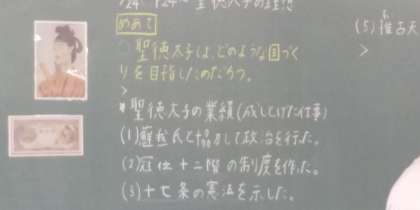 聖徳太子の理想
めあて
○聖徳太子は、どのような国づく
りを目指したのだろう。
>
*聖徳太子の業績(成しとげた仕事)
(1)蘇我氏と協力して政治を行った。
(2)冠位十二階の制度を作った。
(3)十七条の憲法を示した。
(5)推古天
>